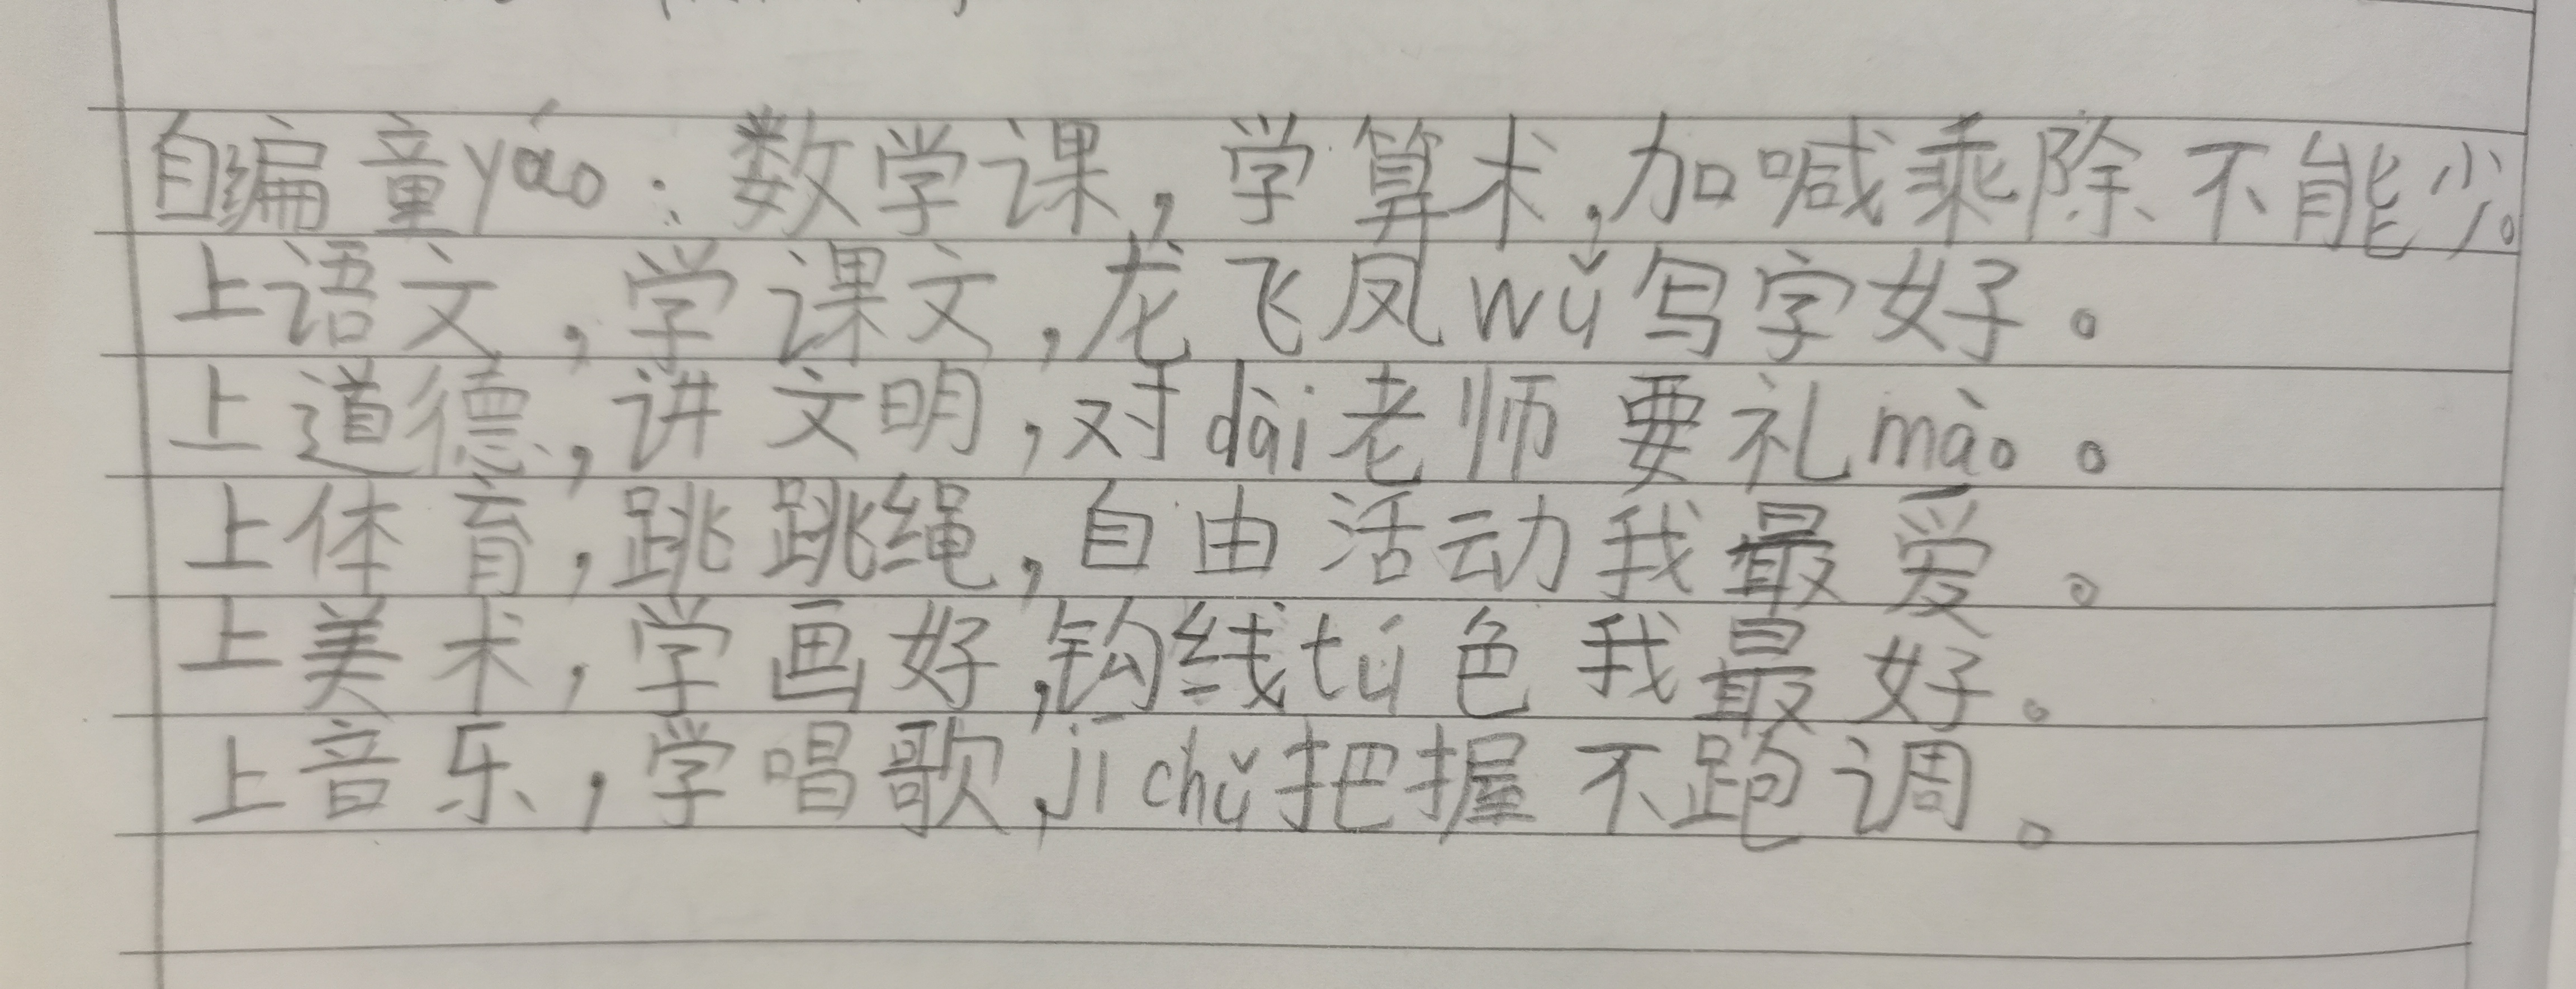 自编童yáo：数学课，学算术，加喊乘除不能少。
上语文，学课文，龙飞凤wǔ写字好。
上道德，讲文明，对dài老师要礼mào。
上体育，跳跳绳，自由活动我最爱。
上美术，学画好，钩线tú色我最好。
上音乐，学唱歌，jī chǔ把握不跑调。